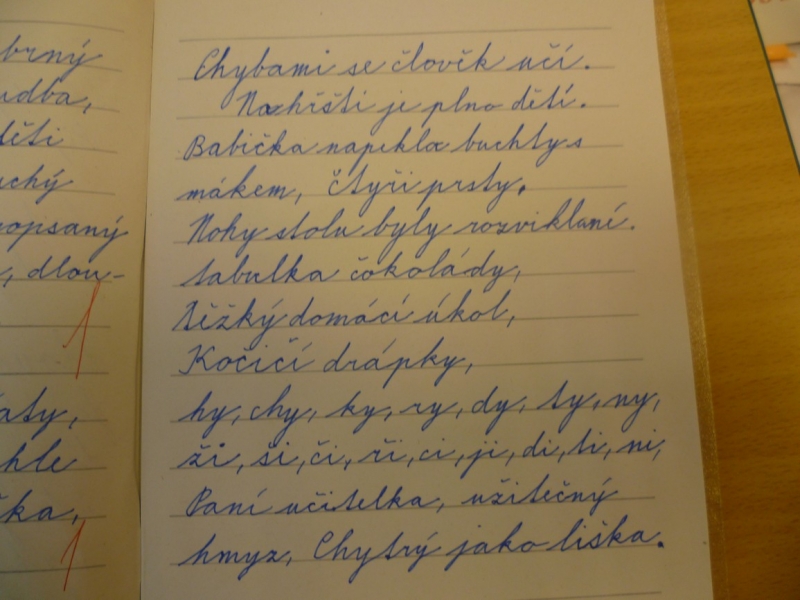 brný
udba,
děti
uchý
popsaný
, dlou-
1
aty,
hle
ka,
1
Chybami se člověk učí.
Na hřišti je plno dětí.
Babička napekla buchty s
mákem, čtyři prsty.
Nohy stolu byly rozviklaní.
tabulka čokolády,
těžký domácí úkol,
Kočičí drápky,
hy, chy, ky, ry, dy, ty, ny,
ži, ši, či, ři, ci, ji, di, ti, ni,
Paní učitelka, užitečný
hmyz, Chytrý jako liška.